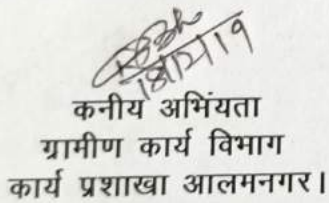 कनीय अभिंयता
ग्रामीण कार्य विभाग
कार्य प्रशाखा आलमनगर।